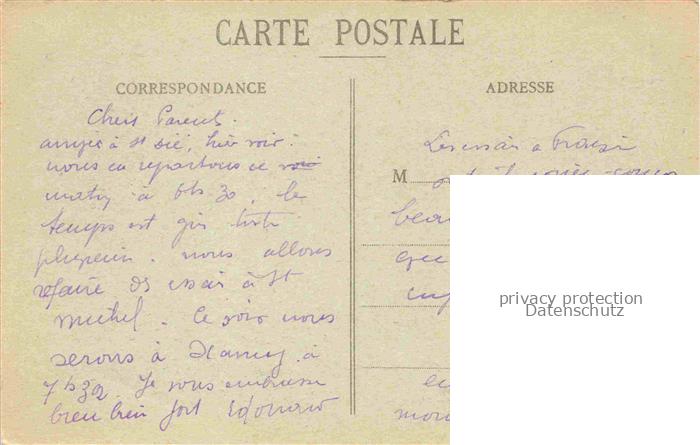 CARTE POSTALE
CORRESPONDANCE
Chers Parents.
arrivés à St dié, hier soir.
nous en repartons ce
matin à 6h 30. le
temps est gris
nous allons
refaire des essais à St
Michel. Ce soir nous
serons à Nancy à
7h30. Je vous embrasse
bien bien fort Edouard
ADRESSE
Les essais à
M
beau
que
en
privacy protection
Datenschutz